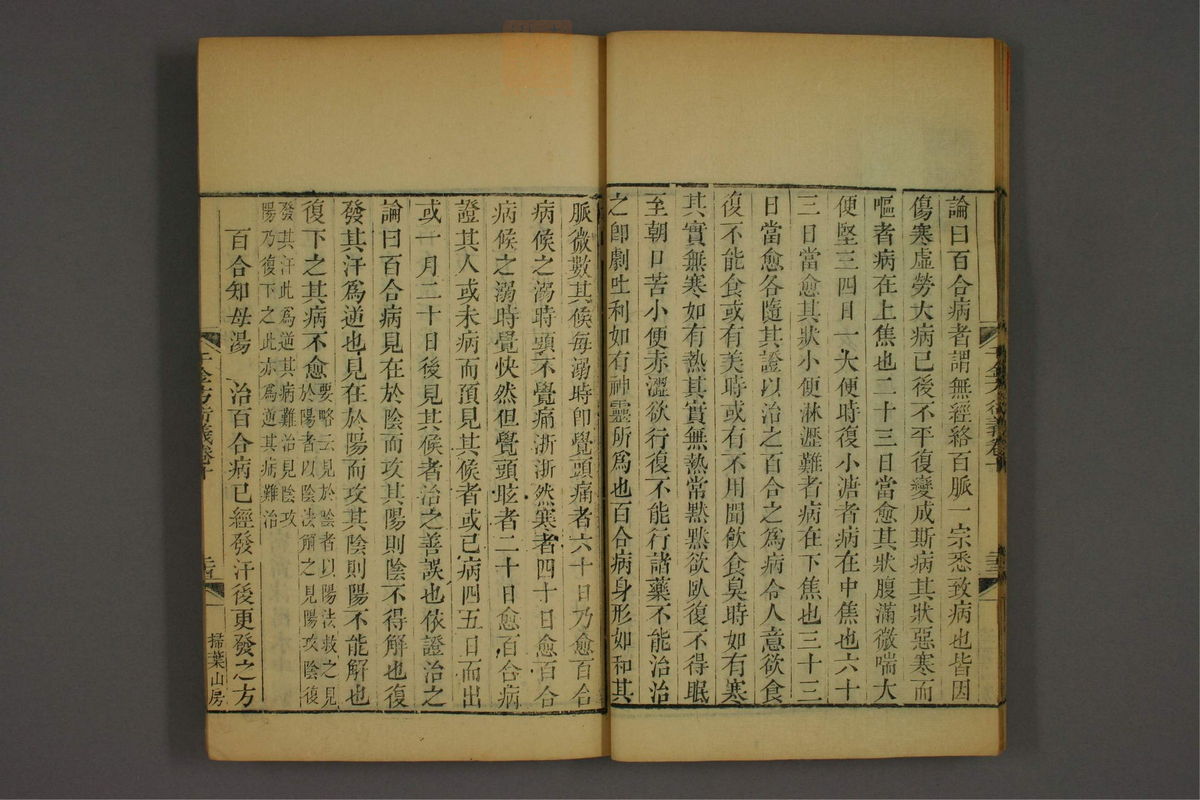 論曰百合病者謂無經絡百脈一宗悉致病也皆因
傷寒虛勞大病已後不平復變成斯病其狀惡寒而
嘔者病在上焦也二十三日當愈其狀腹滿微喘大
便堅三四日一大便時復小溏者病在中焦也六十
三日當愈其狀小便淋瀝難者病在下焦也三十三
日當愈各隨其證以治之百合之為病令人意欲食
復不能食或有美時或有不用聞飲食臭時如有寒
其實無寒如有熱其實無熱常默默欲臥復不得眠
至朝口苦小便赤澀欲行復不能行諸藥不能治治
之卽劇吐利如有神靈所為也百合病身形如和其
脈微數其候每溺時卽覺頭痛者六十日乃愈百合
病候之溺時頭不覺痛淅淅然寒者四十日愈百合
病候之溺時覺快然但覺頭眩者二十日愈百合病
證其人或未病而預見其候者或已病四五日而出
或一月二十日後見其候者治之善誤也依證治之
論曰百合病見在於陰而攻其陽則陰不得解也復
發其汗為逆也見在於陽而攻其陰則陽不能解也
復下之其病不愈要略云見於陰者以陽法救之見
於陽者以陰法解之見陽攻陰復
發其汗此為逆其病難治見陰攻
陽乃復下之此亦為逆其病難治
百合知母湯 治百合病已經發汗後更發之方
千金方衍義卷十
掃葉山房